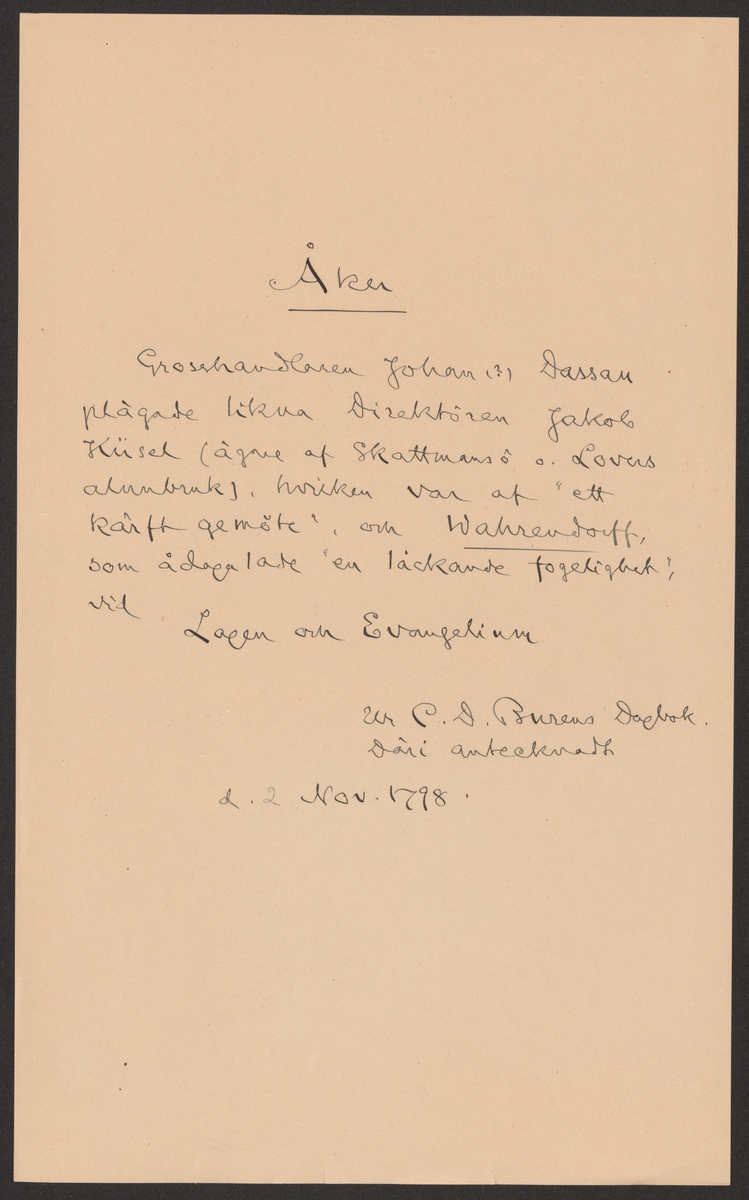 Åker
Grosshandlaren Johan (?) Dassau
plägade likna Direktören Jakob
Küsel (ägare af Skattmansö o. Lovers
alunbruk), hvilken var af "ett
kärft gemöte", och Wahrendorff,
som ådagalade "en läckande fogelighet",
vid
Lagen och Evangelium
Ur C. D. Burens Dagbok.
Däri antecknadt
d. 2 Nov. 1798.